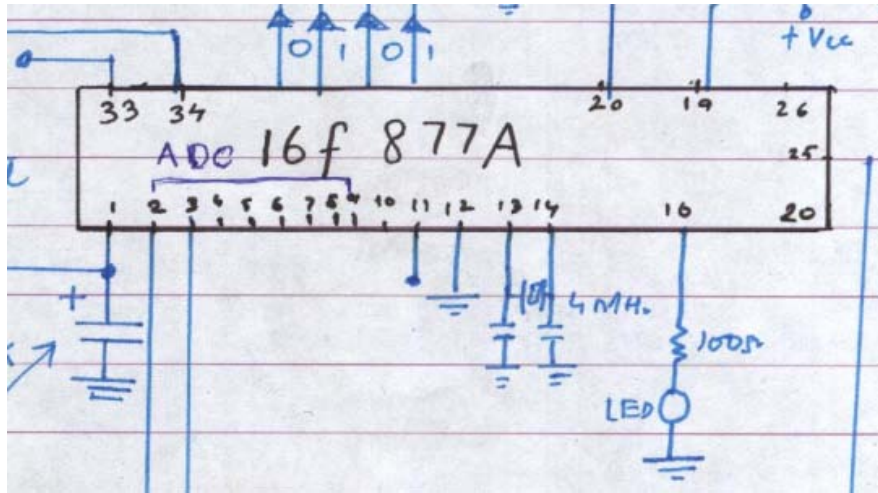 0 1 0 1
+ Vcc
33 34 20 19 26
ADC 16f 877A
25
1 2 3 4 5 6 7 8 9 10 11 12 13 14 16 20
+
4 MH.
100Ω
LED